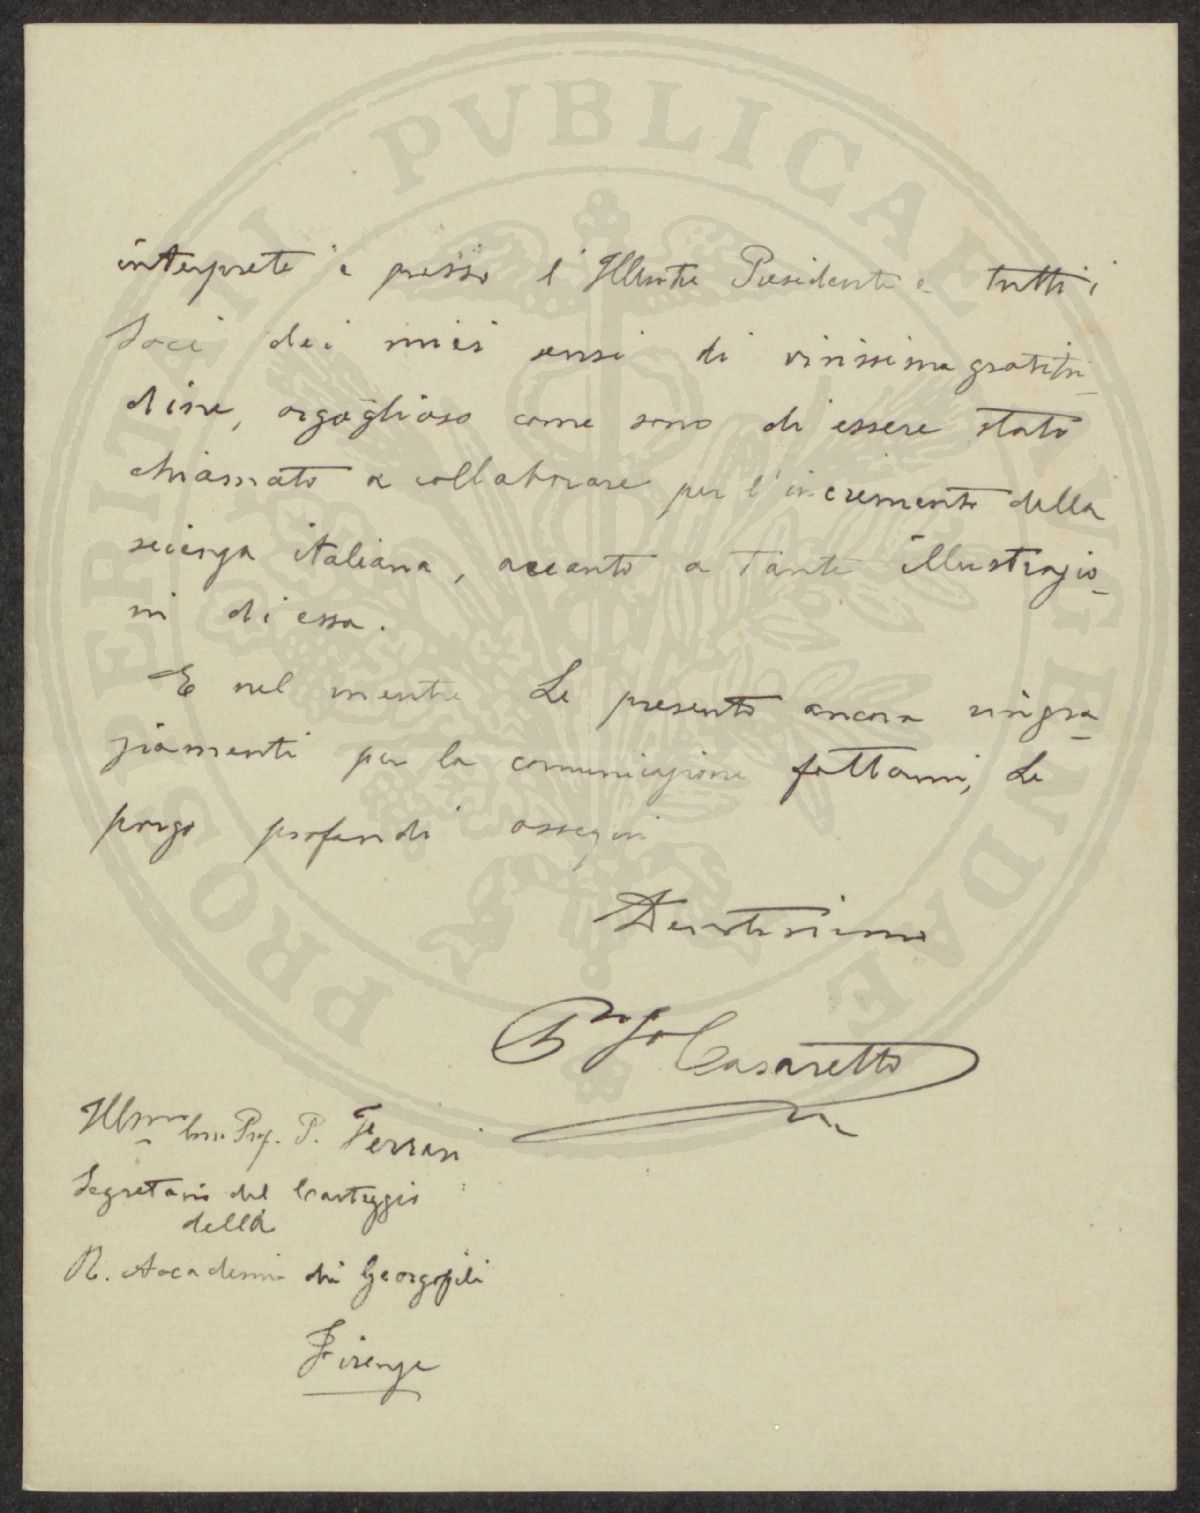 interprete è presso l'Illustre Presidente e tutti i
Soci dei miei sensi di vivissima gratitu-
dine, orgoglioso come sono di essere stato
chiamato a collaborare per l'incremento della
scienza italiana, accanto a tante illustrazio-
ni di essa.
E nel mentre Le presento ancora ringra-
ziamenti per la comunicazione fattami, Le
porgo profondi ossequi
Devotissimo
Casaretto
Illmo Prof. P. Ferrari
Segretario del Carteggio
della
R. Accademia dei Georgofili
Firenze
PROSPERITATI PVBLICAE AVGENDAE